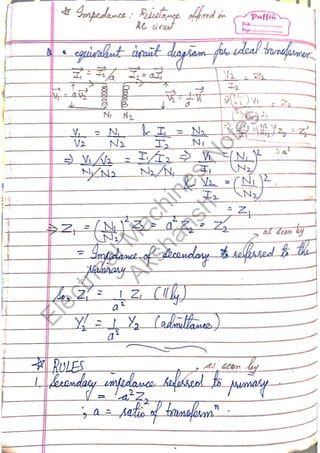 * Impedance: Resistance offered in
AC circuit
Puffin
Date
Page
equivalent circuit diagram for ideal transformer:
I₁ = I₂'/a I₂' = aI₁
V₁ = V₂' V₂' = 1/a V₁
N₁ N₂
V₂/I₂ = Z₂
V₁/V₂ = N₁/N₂ & I₁/I₂ = N₂/N₁
⇒ V₁/V₂ / N₁/N₂ = I₁/I₂ / N₂/N₁ ⇒ V₁/I₁ = (N₁/N₂)²
& V₂/I₂ = (N₁/N₂)²
= Z₁
⇒ Z₁ = (N₁/N₂)² Z₂ = a² Z₂ = Z₂'
as seen by
= Impedance of secondary referred to the
primary
So, Z₁' = 1/a² Z₁ (||ly)
Y₂' = 1/a² Y₂ (admittance)
* RULES
as seen by
1. Secondary impedance referred to primary
= a²Z₂
; a = ratio of transformⁿ.
Electrical Machines Notes
Akshansh